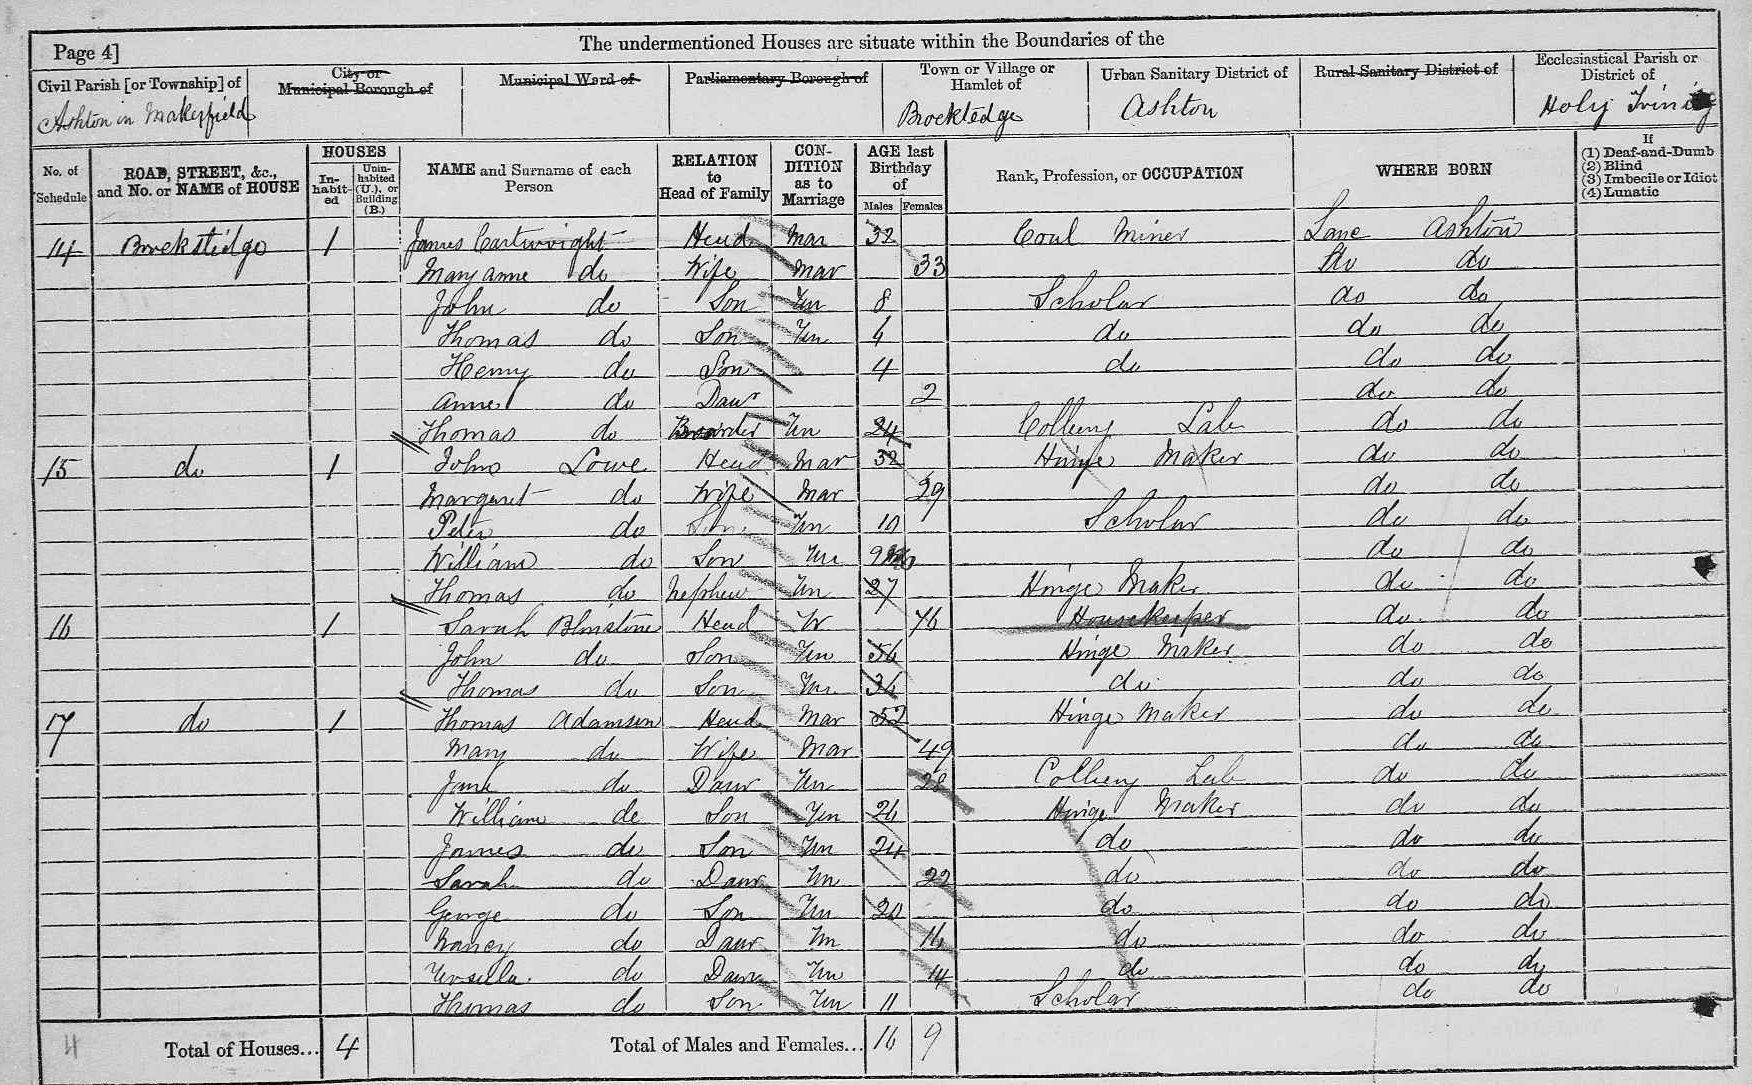 Page 4] The undermentioned Houses are situate within the Boundaries of the
Civil Parish [or Township] of City or Municipal Borough of Municipal Ward of Parliamentary Borough of Town or Village or Hamlet of Urban Sanitary District of Rural Sanitary District of Ecclesiastical Parish or District of
Ashton in Makerfield Brockstedge Ashton Holy Trinity
No. of Schedule ROAD, STREET, &c., and No. or NAME of HOUSE HOUSES Inhabited Uninhabited (U.), or Building (B.) NAME and Surname of each Person RELATION to Head of Family CONDITION as to Marriage AGE last Birthday of Males Females Rank, Profession, or OCCUPATION WHERE BORN If (1) Deaf-and-Dumb (2) Blind (3) Imbecile or Idiot (4) Lunatic
14 Brockstedge 1 James Cartwright Head Mar 32 Coal Miner Lanc Ashton
Mary anne do Wife Mar 33 do do
John do Son Un 8 Scholar do do
Thomas do Son Un 6 do do do
Henry do Son 4 do do do
Anne do Daur 2 do do
Thomas do Boarder Un 24 Colliery Lab do do
15 do 1 John Lowe Head Mar 32 Hinge Maker do do
Margaret do Wife Mar 29 do do
Peter do Son Un 10 Scholar do do
William do Son Un 9 do do
Thomas do Nephew Un 27 Hinge Maker do do
16 1 Sarah Blinstone Head W 76 Housekeeper do do
John do Son Un 56 Hinge Maker do do
Thomas do Son Un 36 do do do
17 do 1 Thomas Adamson Head Mar 52 Hinge Maker do do
Mary do Wife Mar 49 do do
Jane do Daur Un 28 Colliery Lab do do
William do Son Un 26 Hinge Maker do do
James do Son Un 24 do do do
Sarah do Daur Un 22 do do do
George do Son Un 20 do do do
Nancy do Daur Un 16 do do do
Ursella do Daur Un 14 do do do
Thomas do Son Un 11 Scholar do do
4 Total of Houses... 4 Total of Males and Females... 16 9